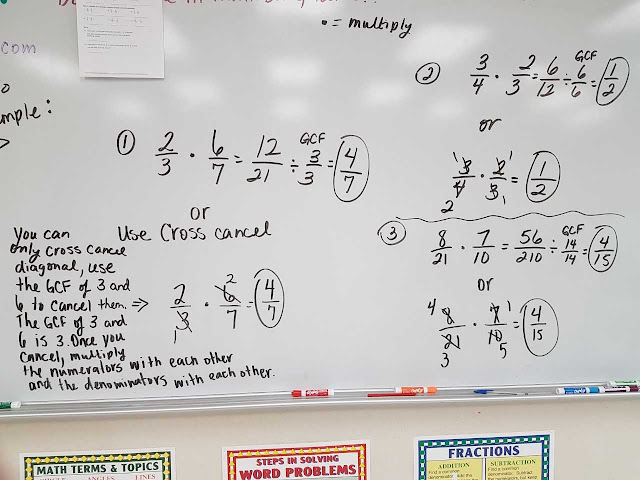 • = multiply
.com
mple:
① 2/3 · 6/7 = 12/21 ÷ GCF 3/3 = 4/7
or
Use Cross cancel
You can
only cross cancel
diagonal, use
the GCF of 3 and
6 to cancel them. ⇒ 2/3 1 · 6 2/7 = 4/7
The GCF of 3 and
6 is 3. Once you
cancel, multiply
the numerators with each other
and the denominators with each other.
② 3/4 · 2/3 = 6/12 ÷ GCF 6/6 = 1/2
or
1 3/4 2 · 2 1/3 1 = 1/2
③ 8/21 · 7/10 = 56/210 ÷ GCF 14/14 = 4/15
or
4 8/21 3 · 7 1/10 5 = 4/15
MATH TERMS & TOPICS
ANGLES LINES
STEPS IN SOLVING
WORD PROBLEMS
FRACTIONS
ADDITION SUBTRACTION